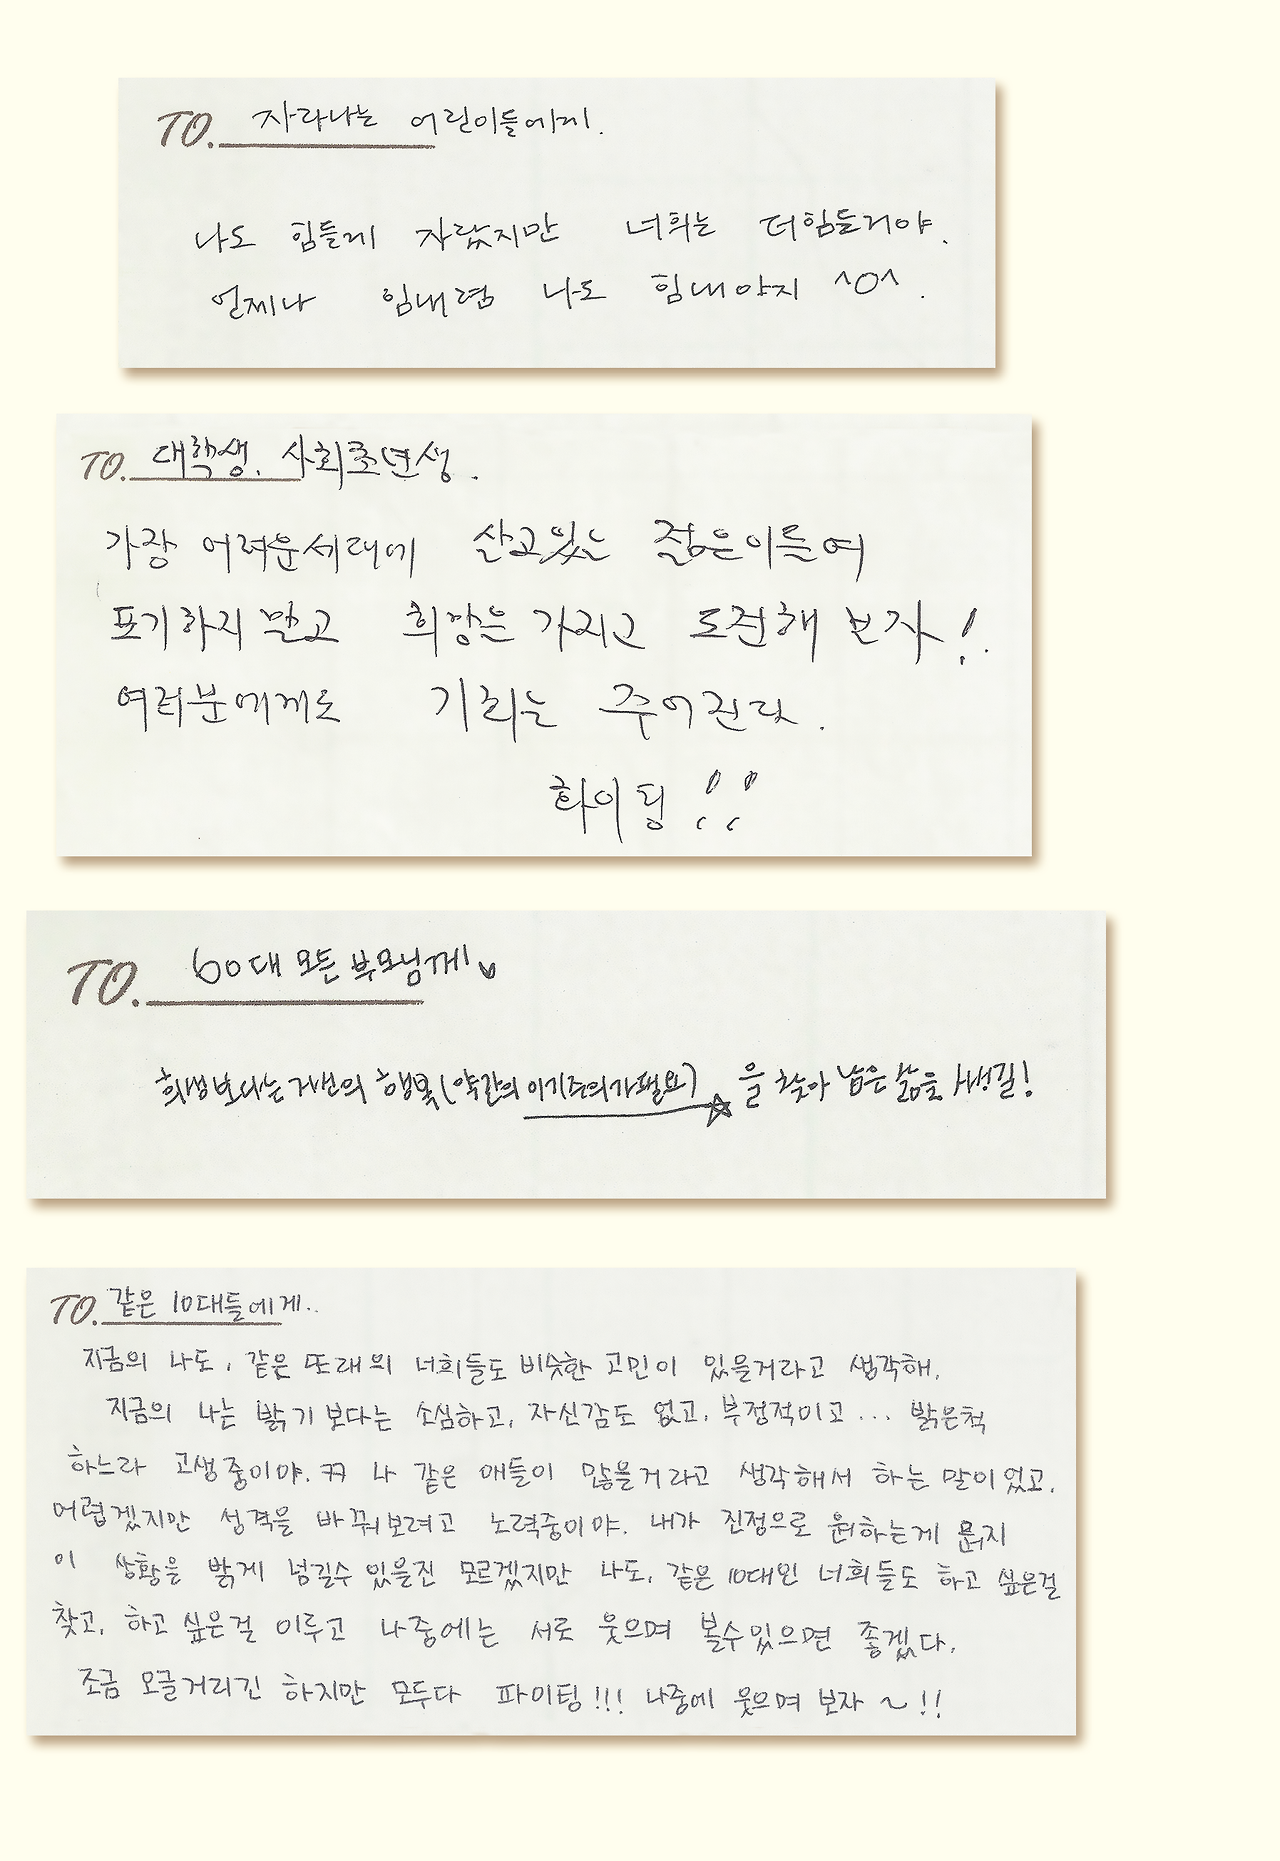 TO. 자라나는 어린이들에게.
나도 힘들게 자랐지만 너희는 더힘들거야.
언제나 힘내렴 나도 힘내야지 ^O^.
TO. 대학생. 사회초년생.
가장 어려운세대에 살고있는 젊은이들여
포기하지말고 희망은 가지고 도전해 보자!.
여러분에게도 기회는 주어진다.
화이팅!!
TO. 60대 모든 부모님께!
희생보다는 개인의 행복(약간의 이기주의가필요)☆을 찾아 남은 삶을 사생길!
TO. 같은 10대들에게..
지금의 나도, 같은 또래의 너희들도 비슷한 고민이 있을거라고 생각해.
지금의 나는 밝기 보다는 소심하고, 자신감도 없고, 부정적이고... 밝은척
하느라 고생중이야.ㅋㅋ 나 같은 애들이 많을거라고 생각해서 하는 말이었고.
어렵겠지만 성격을 바꿔보려고 노력중이야. 내가 진정으로 원하는게 뭔지
이 상황을 밝게 넘길수 있을진 모르겠지만 나도, 같은 10대인 너희들도 하고 싶은걸
찾고, 하고싶은걸 이루고 나중에는 서로 웃으며 볼수있으면 좋겠다.
조금 오글거리긴 하지만 모두다 파이팅!!! 나중에 웃으며 보자~!!